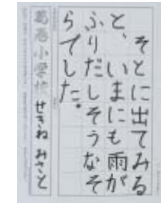 そとに出てみる
と、いまにも雨が
ふりだしそうなそ
らでした。
小学校 せきね みさと